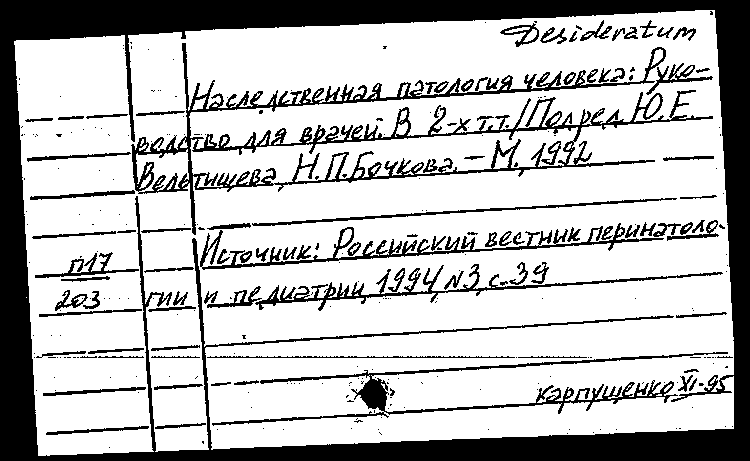 Desideratum
Наследственная патология человека: Руко-
водство для врачей. В 2-х т.т./Под ред. Ю.Е.
Вельтищева, Н.П.Бочкова. – М., 1992
Источник: Российский вестник перинатоло-
П17
203 гии и педиатрии, 1994, N3, с.39
Карпущенко, XI-95